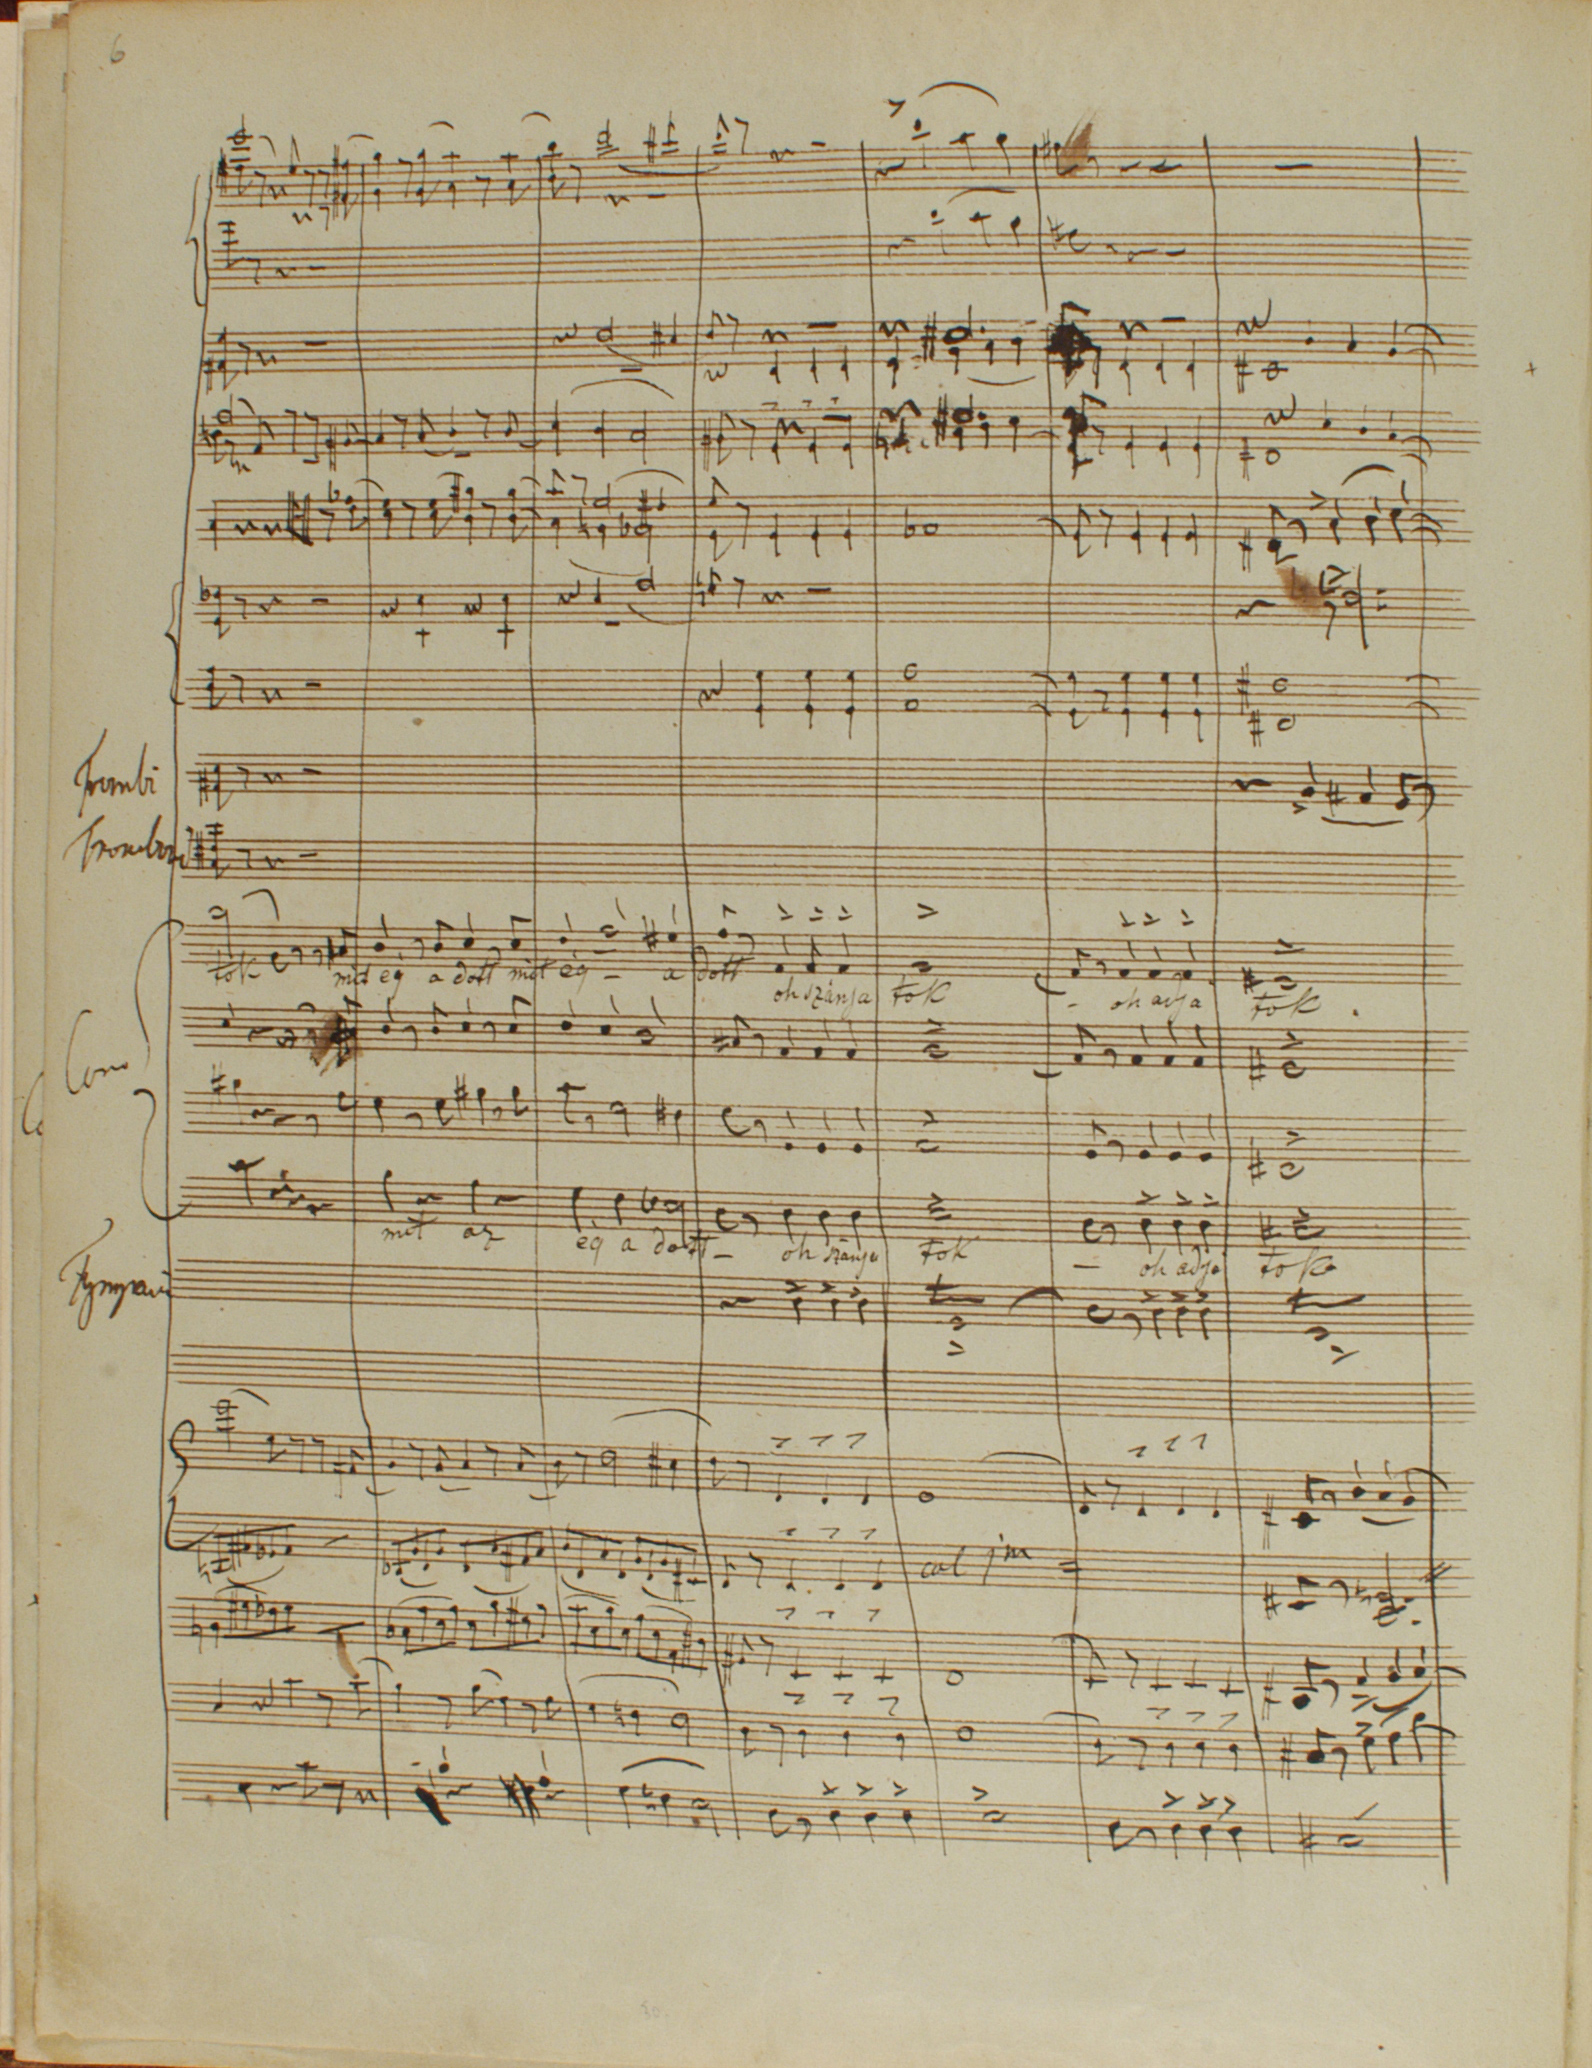 6
Trombi
Tromboni
tok mit ég a dott mit ég – a dott
oh szánja tok – oh adja tok .
Coro
mit az ég a dott – oh szánja tok – oh adja tok
Tympani
col 1mo
30.